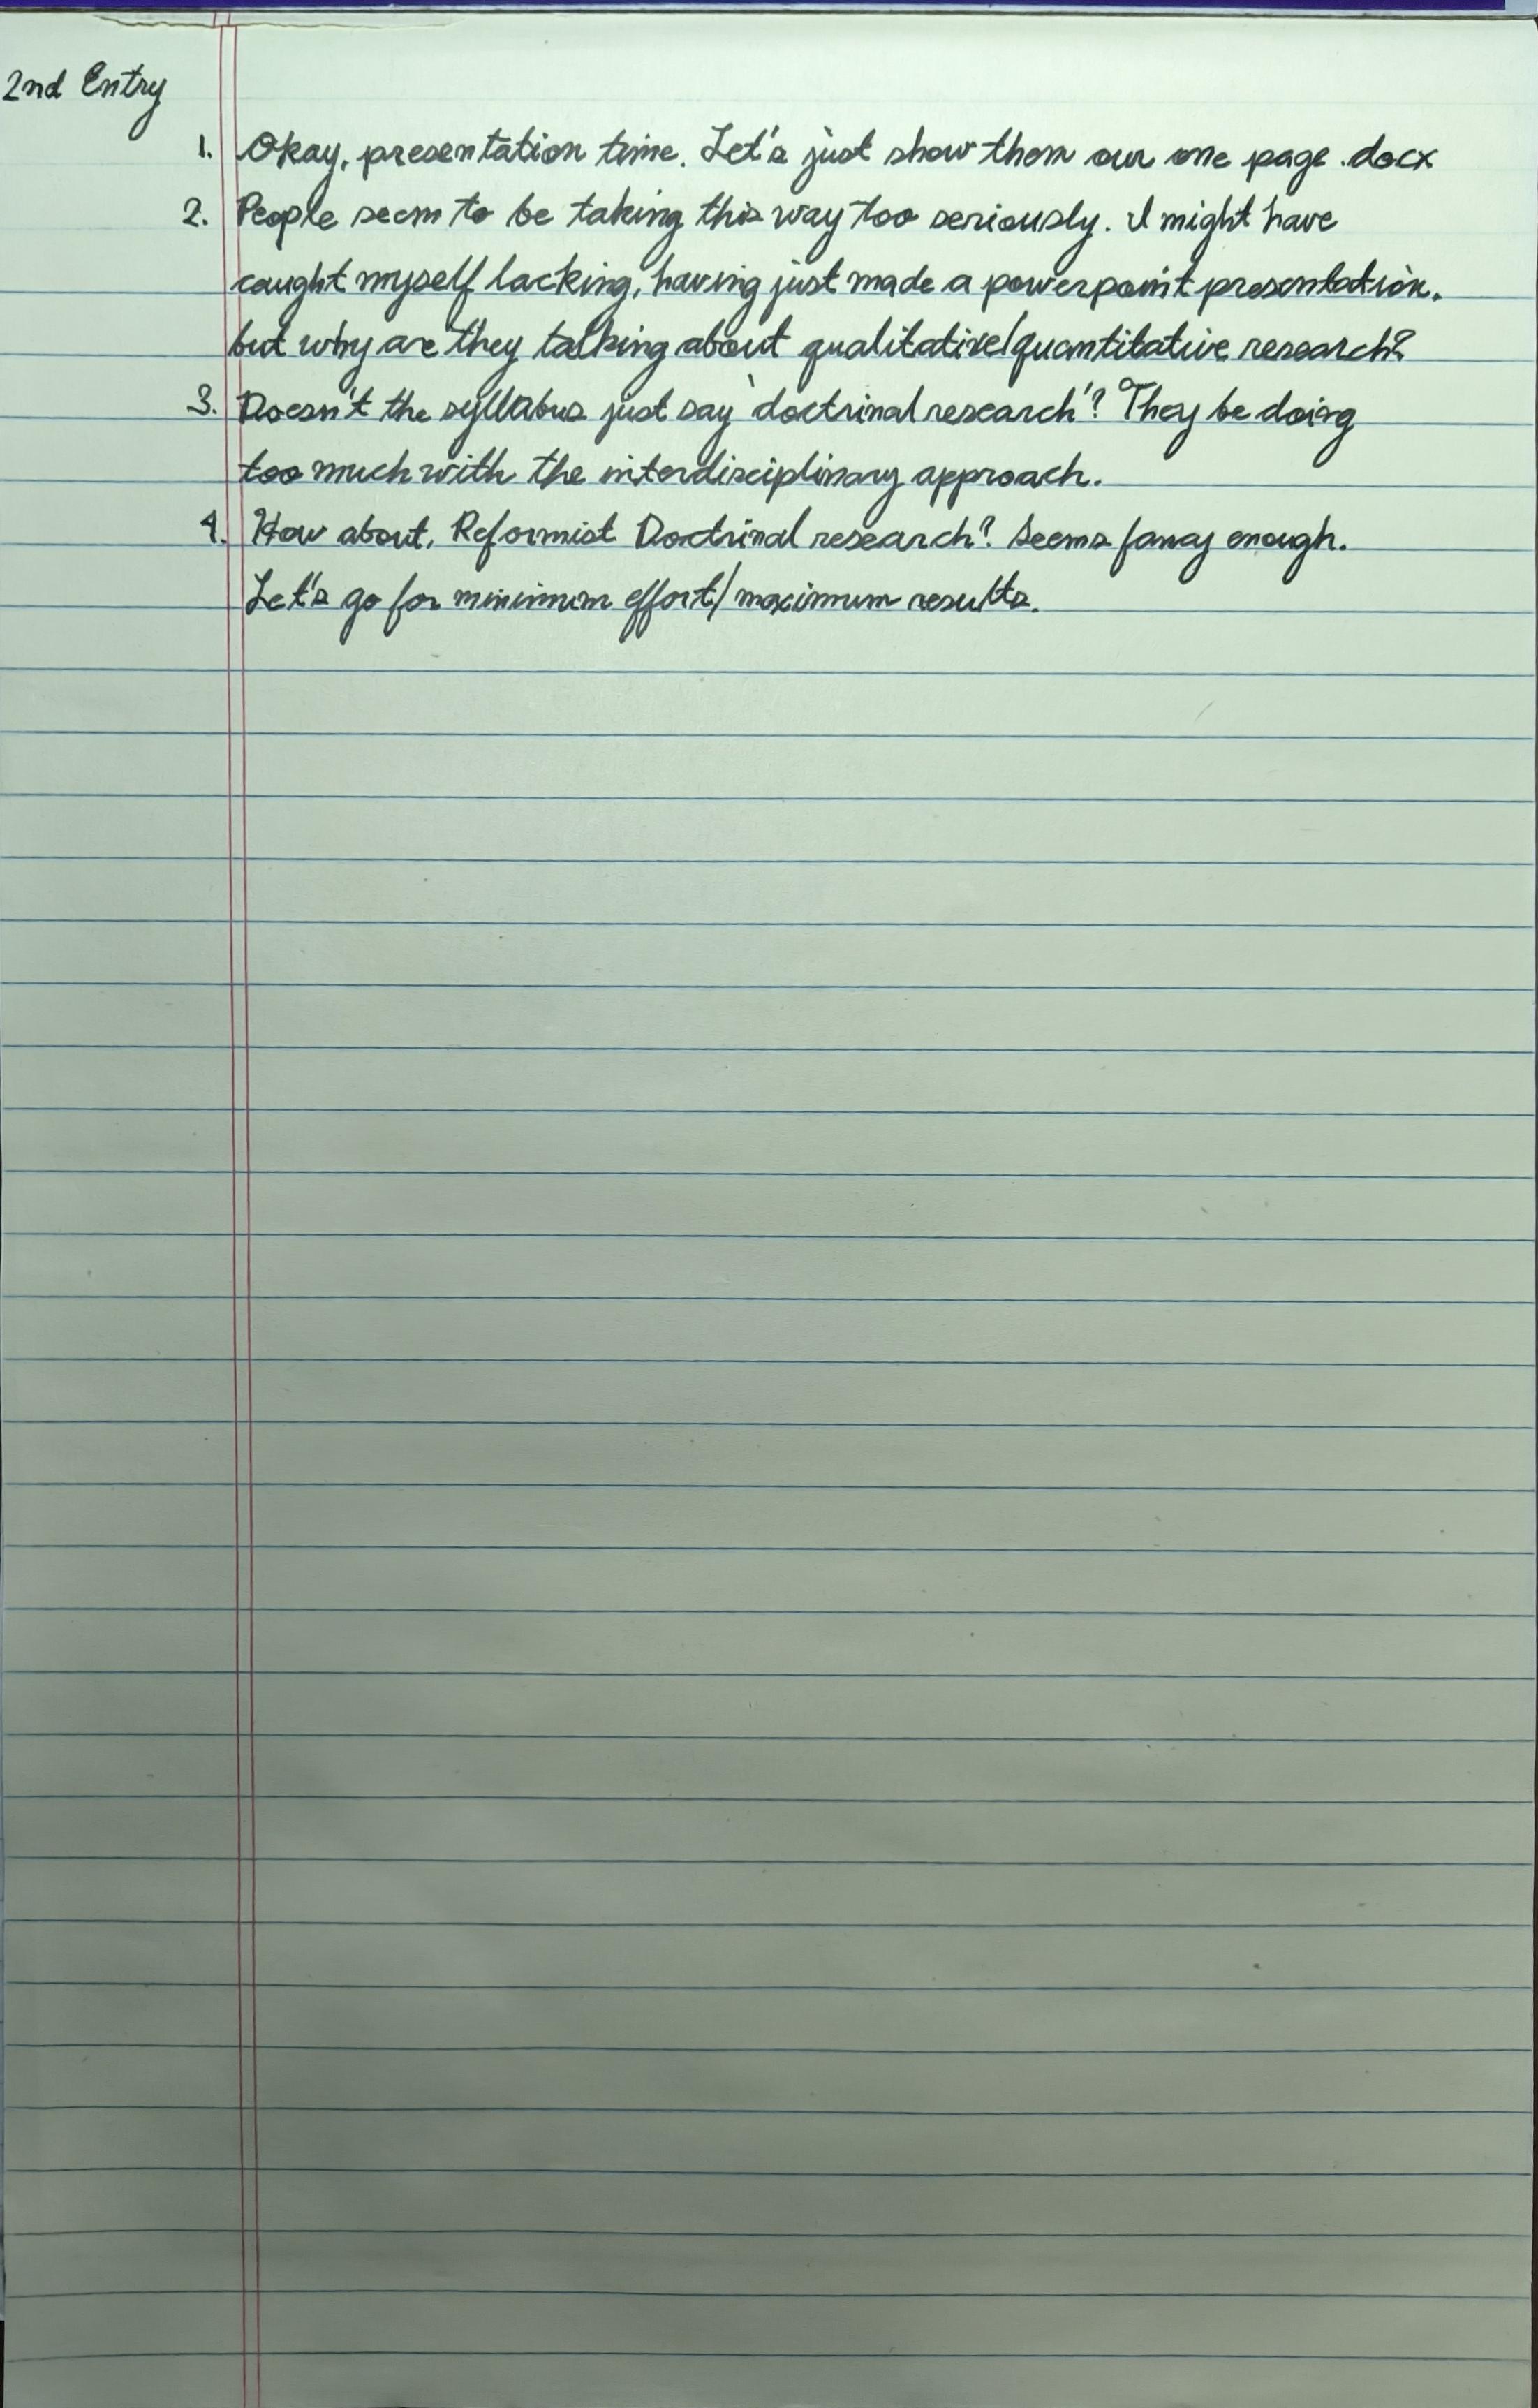 2nd Entry
1. Okay, presentation time. Let's just show them our one page .docx
2. People seem to be taking this way too seriously. I might have
caught myself lacking, having just made a powerpoint presentation.
but why are they talking about qualitative/quantitative research?
3. Doesn't the syllabus just say 'doctrinal research'? They be doing
too much with the interdisciplinary approach.
4. How about, Reformist Doctrinal research? Seems fancy enough.
Let's go for minimum effort/maximum results.